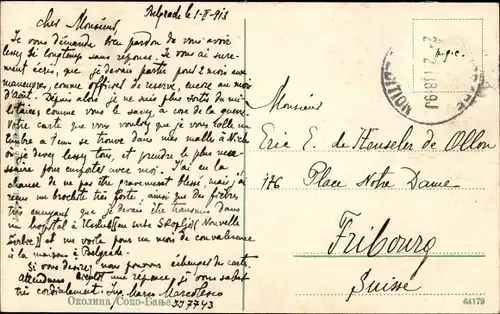 Belgrade le 1-II-913
Cher Monsieur,
Je vous demande bien pardon de vous avoir
laissé si longtemps sans réponse. Je vous ai sure-
ment écris, que je devais partir pour 2 mois aux
manœuvres, comme officier de reserve, encore au mois
d'Août. Depuis alors je ne suis plus sorti du mi-
litaires comme vous le savez, à cose de la guerre.
Votre carte que vous voulez que je vous colle un
timbre a 1 cm se trouve dans mes malle à Nich
où je devez lessy tout, et prendre le plus neces-
saire pour emporter avec moi. J'ai eu la
chanse de ne pas être gravement blessé, mais j'ai
reçus un brochite très forte, ainsi que des fièvres
très ennuyant que je devais être transmis dans
un hospital à Uskub (en serbe Skoplje) (Nouvelle
Serbie) et me voila pour un mois de convalesence
à la maison à Belgrade.
Si vous desirez nous pouvons échanger des cartes
attendons bientôt une réponse, je vous salut
très cordialement. Ing. Marco Marcolesco
Околина Соко-Бање
337743
Monsieur
Eric E. de Henseler de Ollon
186 Place Notre Dame
Fribourg
Suisse
64179